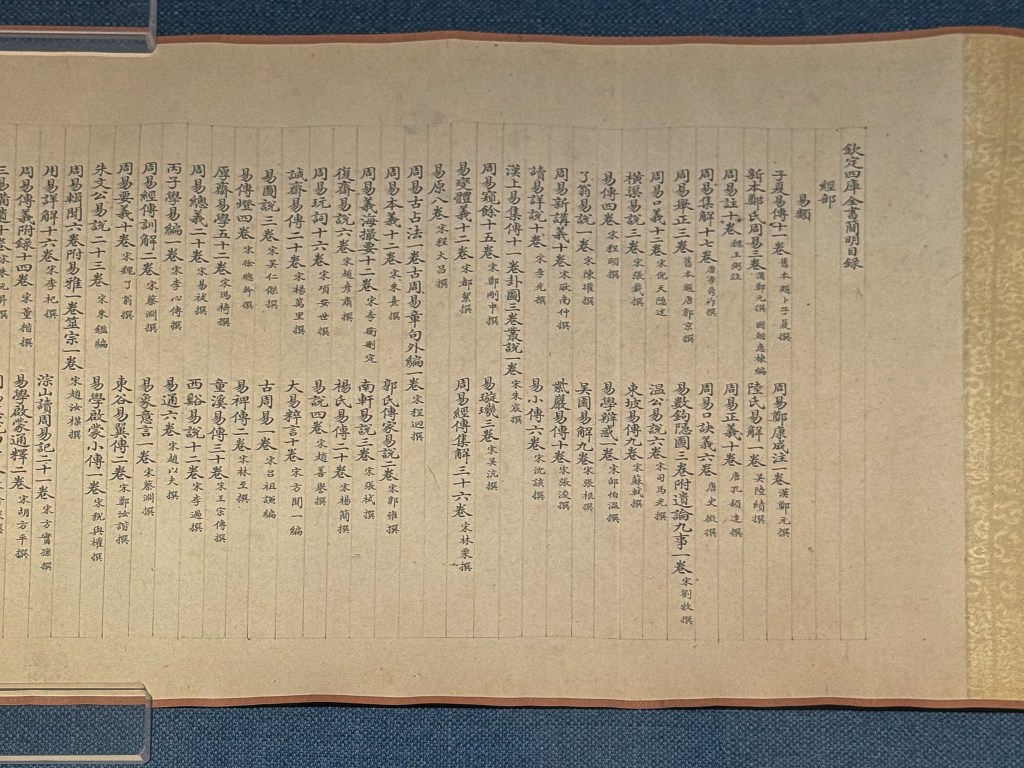 欽定四庫全書簡明目錄
經部
易類
子夏易傳十一卷 舊本題卜子夏撰 周易鄭康成注一卷 漢鄭元撰
新本鄭氏周易三卷 漢鄭元撰 國朝惠棟編 陸氏易解一卷 吳陸績撰
周易註十卷 魏王弼註 周易正義十卷 唐孔穎達撰
周易集解十七卷 唐李鼎祚撰 周易口訣義六卷 唐史徵撰
周易舉正三卷 舊本題唐郭京撰 易數鉤隱圖三卷附遺論九事一卷 宋劉牧撰
周易口義十二卷 宋倪天隱述 溫公易說六卷 宋司馬光撰
橫渠易說三卷 宋張載撰 東坡易傳九卷 宋蘇軾撰
易傳四卷 宋程頤撰 易學辨惑一卷 宋邵伯溫撰
了翁易說一卷 宋陳瓘撰 吳園易解九卷 宋張根撰
周易新講義十卷 宋耿南仲撰 紫巖易傳十卷 宋張浚撰
讀易詳說十卷 宋李光撰 易小傳六卷 宋沈該撰
漢上易集傳十一卷卦圖三卷叢說一卷 宋朱震撰
周易窺餘十五卷 宋鄭剛中撰 易璇璣三卷 宋吳沆撰
易變體義十二卷 宋都絜撰 周易經傳集解三十六卷 宋林栗撰
易原八卷 宋程大昌撰
周易古占法一卷古周易章句外編一卷 宋程迥撰
周易本義十二卷 宋朱熹撰 郭氏傳家易說二卷 宋郭雍撰
周易義海撮要十二卷 宋李衡刪定 南軒易說三卷 宋張栻撰
復齋易說六卷 宋趙彥肅撰 楊氏易傳二十卷 宋楊簡撰
周易玩詞十六卷 宋項安世撰 易說四卷 宋趙善譽撰
誠齋易傳二十卷 宋楊萬里撰 大易粹言十卷 宋方聞一編
易圖說三卷 宋吳仁傑撰 古周易一卷 宋呂祖謙編
易傳燈四卷 宋徐總幹撰 易裨傳二卷 宋林至撰
厚齋易學五十二卷 宋馮椅撰 童溪易傳三十卷 宋王宗傳撰
周易總義二十卷 宋易祓撰 西谿易說十二卷 宋李過撰
丙子學易編一卷 宋李心傳撰 易通六卷 宋趙以夫撰
周易經傳訓解二卷 宋蔡淵撰 易象意言一卷 宋蔡淵撰
周易要義十卷 宋魏了翁撰 東谷易翼傳二卷 宋鄭汝諧撰
朱文公易說二十三卷 宋朱鑑編 易學啟蒙小傳一卷 宋稅與權撰
周易輯聞六卷附易雅一卷筮宗一卷 宋趙汝楳撰
用易詳解十六卷 宋李杞撰 淙山讀周易記二十一卷 宋方實孫撰
周易傳義附錄十四卷 宋董楷撰 易學啟蒙通釋二卷 宋胡方平撰